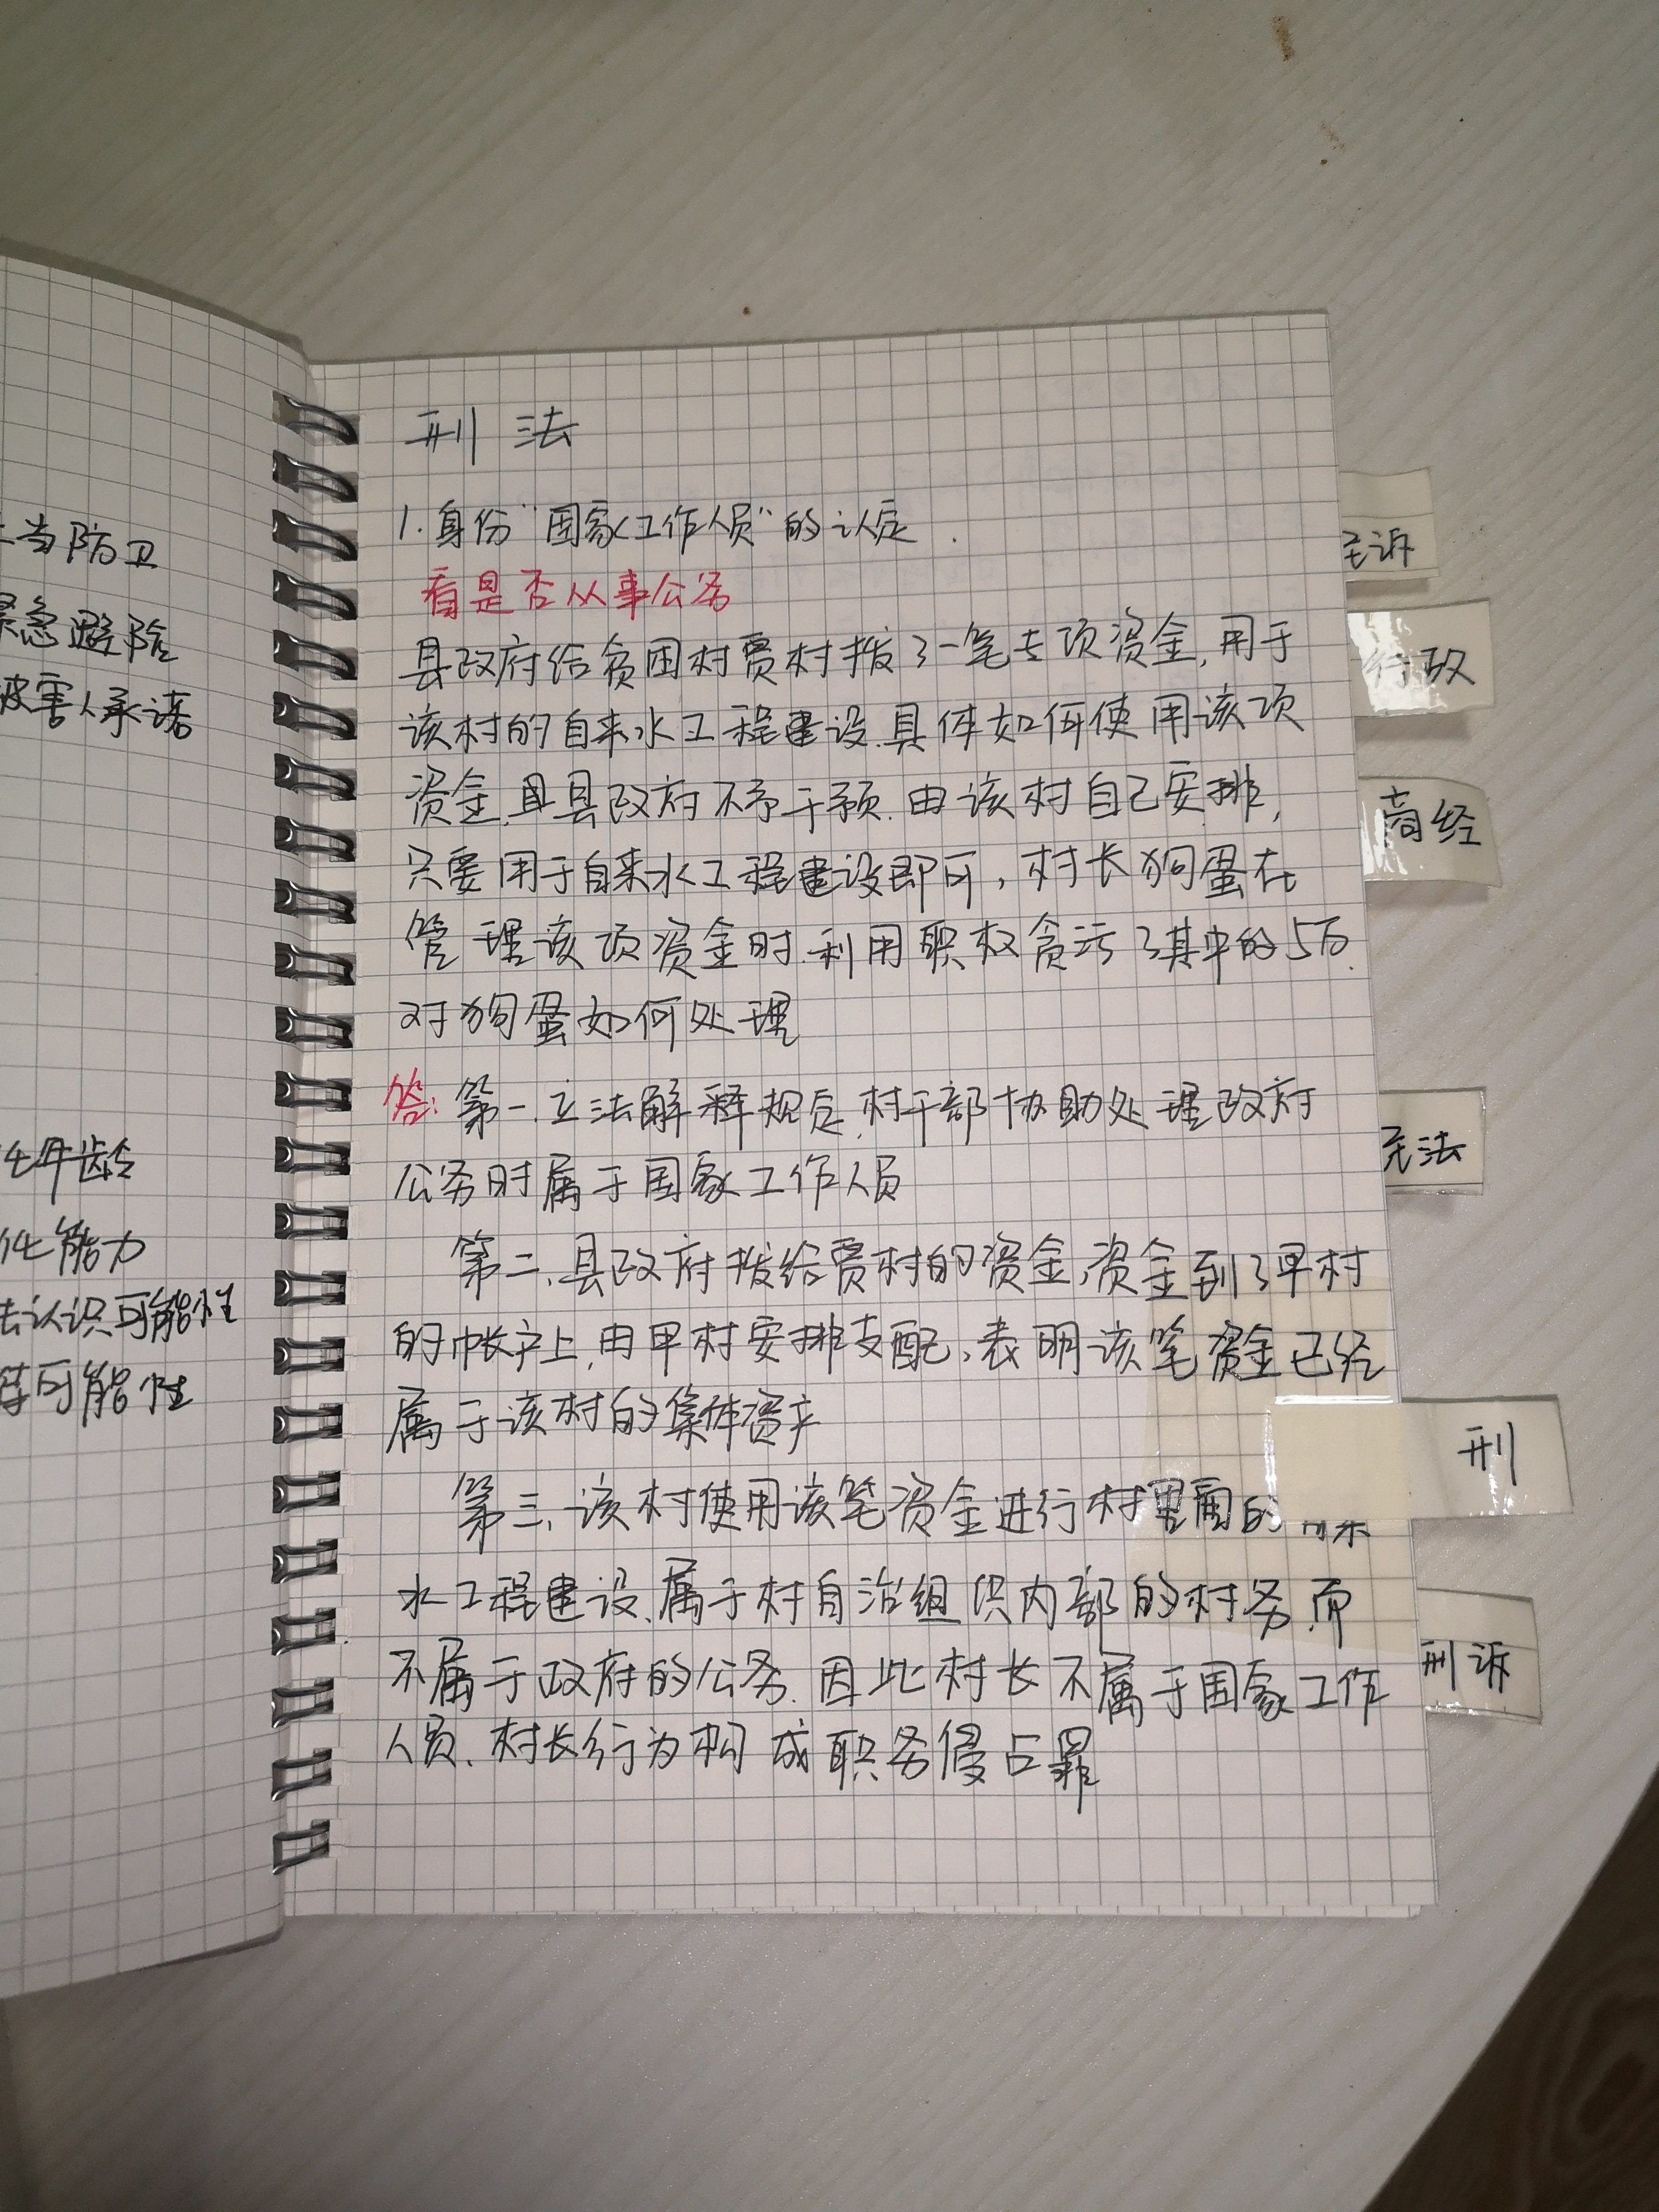 当防卫
急避险
被害人承诺
年龄
能力
认识可能性
可能性
刑 法
1.身份"国家工作人员"的认定
看是否从事公务
县政府给贫困村贾村拨了一笔专项资金,用于
该村的自来水工程建设.具体如何使用该项
资金,且县政府不予干预.由该村自己安排,
只要用于自来水工程建设即可,村长狗蛋在
管理该项资金时.利用职权贪污了其中的5万.
对狗蛋如何处理
答:第一.立法解释规定,村干部协助处理政府
公务时属于国家工作人员
第二、县政府拨给贾村的资金,资金到了甲村
的帐户上,由甲村安排支配,表明该笔资金已经
属于该村的集体资产
第三、该村使用该笔资金进行村里面的
水工程建设、属于村自治组织内部的村务.而
不属于政府的公务.因此村长不属于国家工作
人员.村长行为构成职务侵占罪
民诉
行政
商经
民法
刑
刑诉